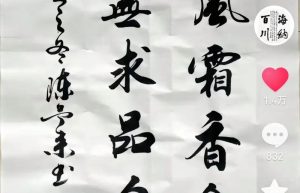 風霜香
無求品
冬陳
书
海納
百川
1.4万
832